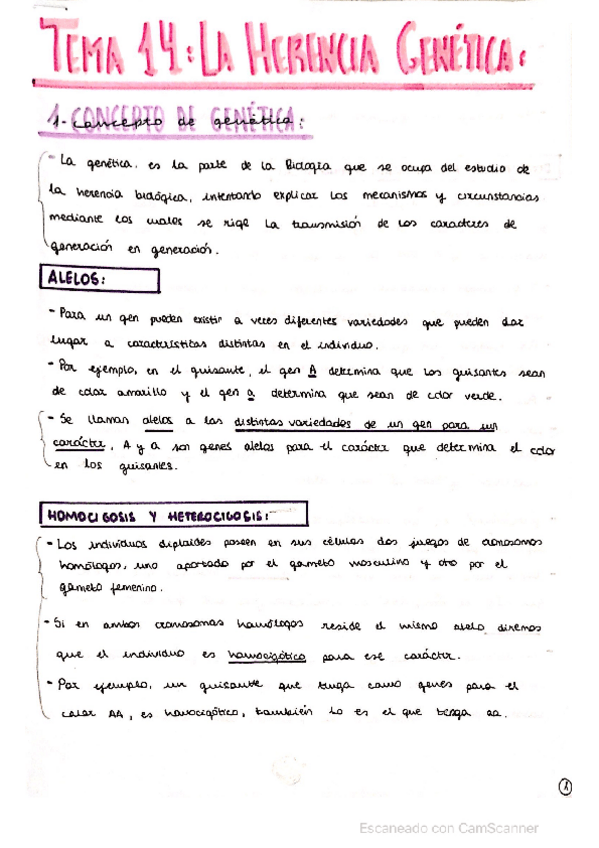 TEMA 14: LA HERENCIA GENÉTICA:
1- CONCEPTO DE genética:
- La genética, es la parte de la Biología que se ocupa del estudio de
la herencia biológica, intentando explicar los mecanismos y circunstancias
mediante los cuales se rige la transmisión de los caracteres de
generación en generación.
ALELOS:
- Para un gen pueden existir a veces diferentes variedades que pueden dar
lugar a características distintas en el individuo.
- Por ejemplo, en el guisante, el gen A determina que los guisantes sean
de color amarillo y el gen a determina que sean de color verde.
- Se llaman alelos a las distintas variedades de un gen para un
carácter, A y a son genes alelos para el carácter que determina el color
en los guisantes.
HOMOCIGOSIS Y HETEROCIGOSIS:
- Los individuos diploides poseen en sus células dos juegos de cromosomas
homólogos, uno aportado por el gameto masculino y otro por el
gameto femenino.
- Si en ambos cromosomas homólogos reside el mismo alelo diremos
que el individuo es homocigótico para ese carácter.
- Por ejemplo, un guisante que tenga como genes para el
color AA, es homocigótico, también lo es el que tenga aa.
1
Escaneado con CamScanner